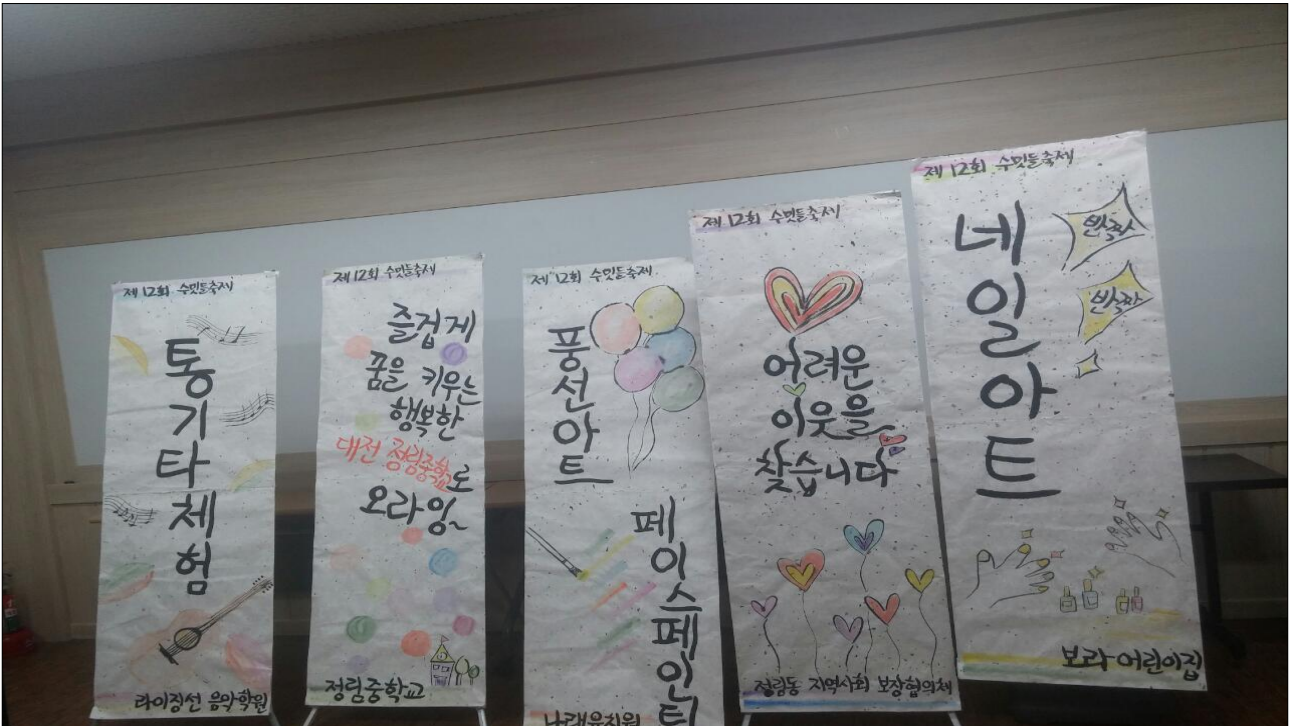 제12회 수밋들축제
통기타체험
라이징선 음악학원
제12회 수밋들축제
즐겁게
꿈을 키우는
행복한
대전 정림중학교로
오라잉~
정림중학교
제12회 수밋들축제
풍선아트
페이스페인팅
나래유치원
제12회 수밋들축제
어려운
이웃을
찾습니다
정림동 지역사회 보장협의체
제12회 수밋들축제
네일아트
반짝
반짝
보라 어린이집